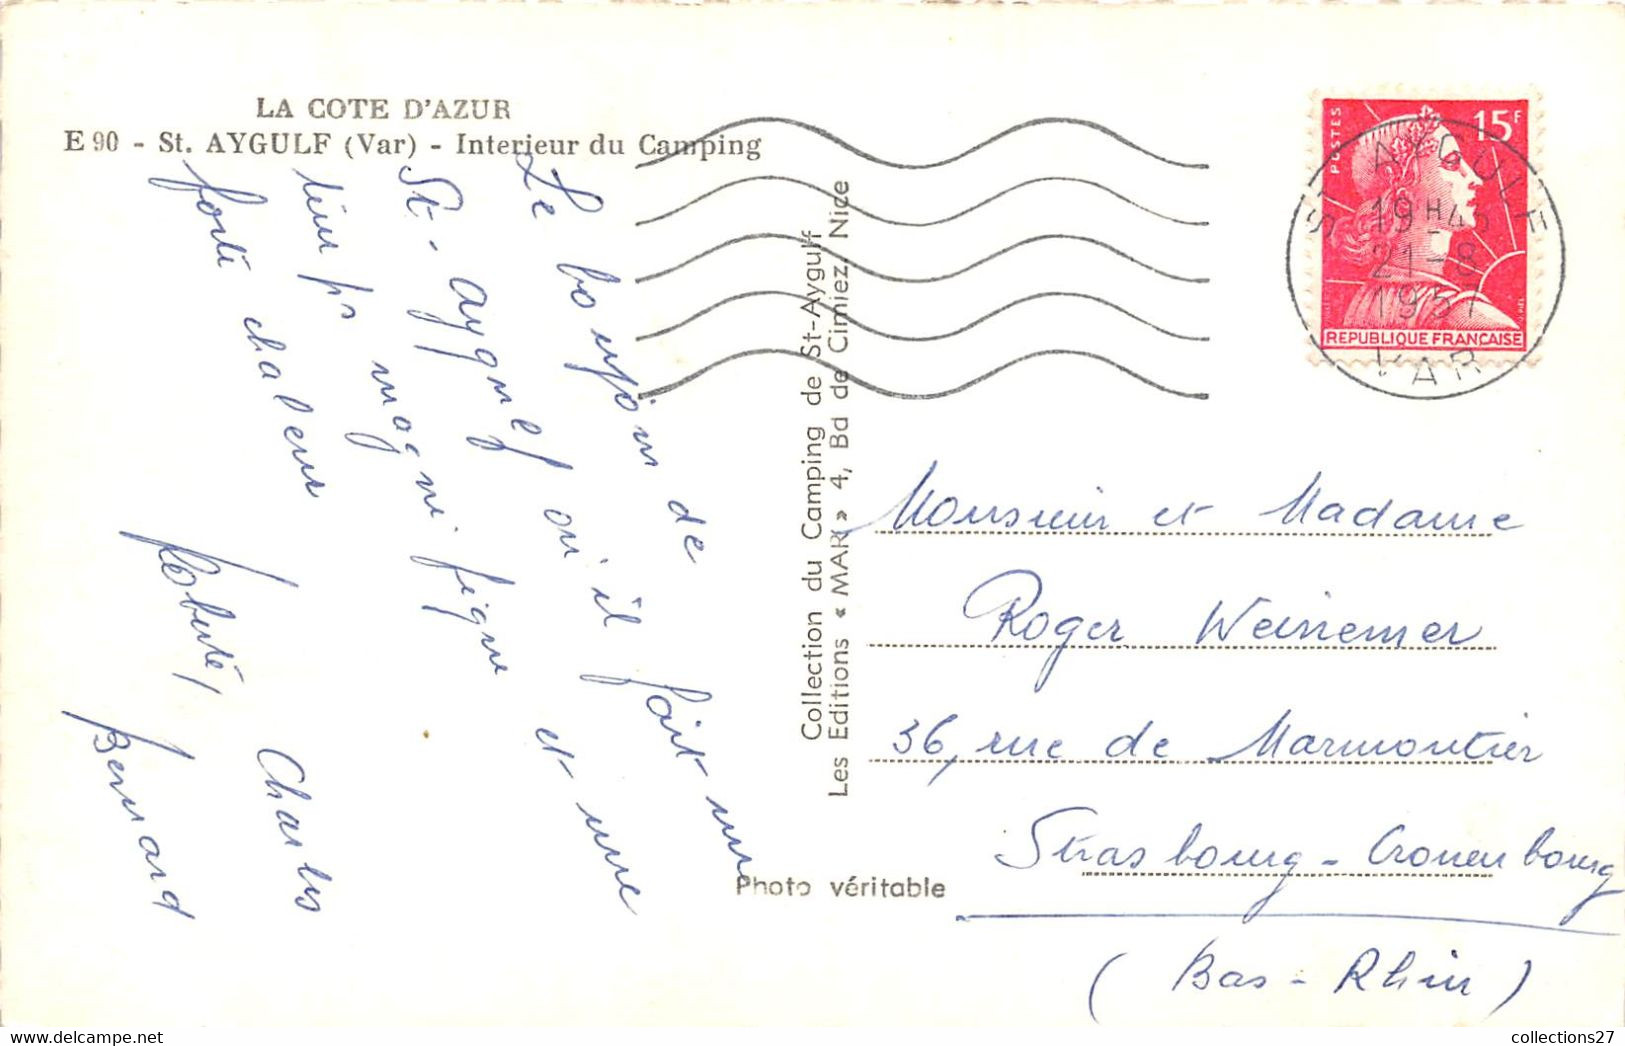 LA COTE D'AZUR
E 90 - St. AYGULF (Var) - Interieur du Camping
Le bonjour de
St-Aygulf où il fait un
temps magnifique et une
forte chaleur
Charles
Bernard
Collection du Camping de St-Aygulf
Les Editions « MAR » 4, Bd de Cimiez, Nice
Photo véritable
POSTES
15F
REPUBLIQUE FRANÇAISE
ST AYGULF
19H45
21-8
1957
VAR
Monsieur et Madame
Roger Weinemer
36, rue de Marmoutier
Strasbourg-Cronenbourg
(Bas-Rhin)
collections27